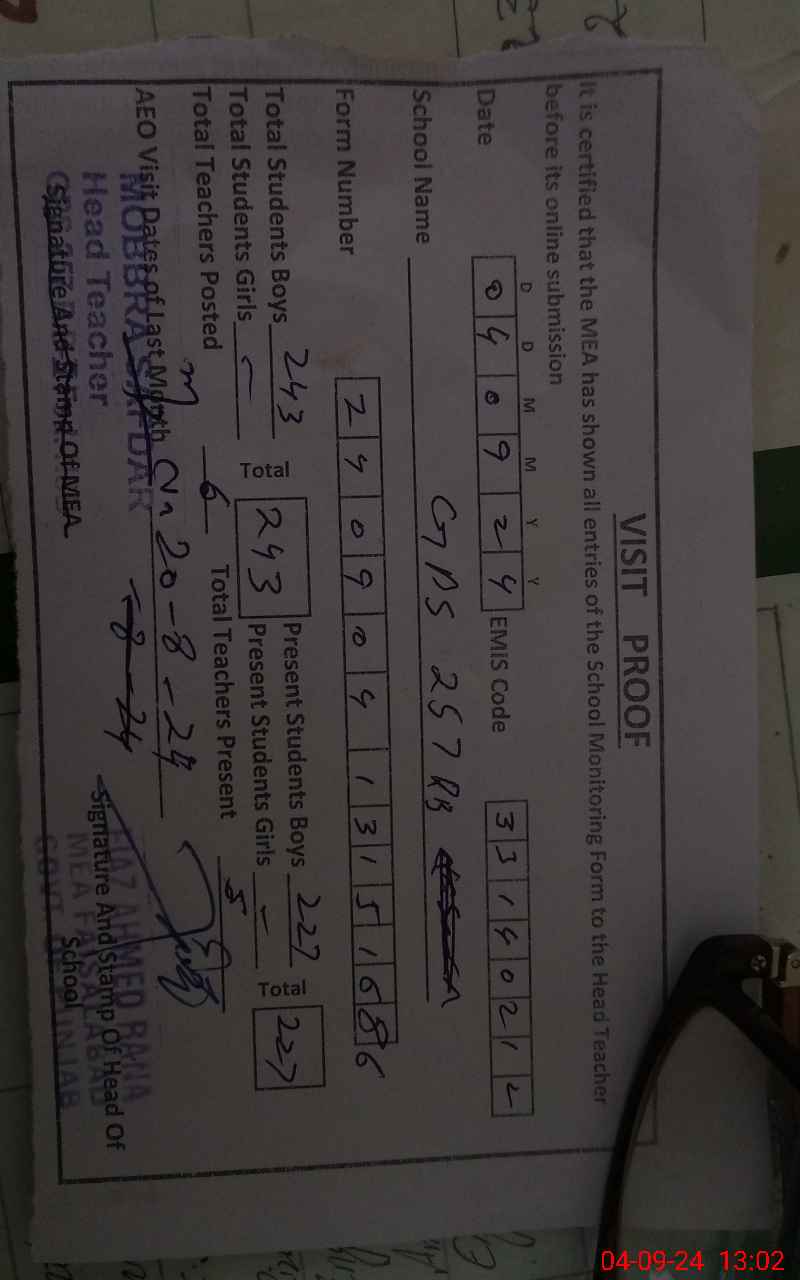 VISIT PROOF
It is certified that the MEA has shown all entries of the School Monitoring Form to the Head Teacher
before its online submission
D D M M Y Y
Date 0 4 0 9 2 4 EMIS Code 3 3 1 4 0 2 1 2
School Name GPS 257 RB
Form Number 2 4 0 9 0 4 1 3 1 5 1 6 8 6
Total Students Boys 243 Total 243 Present Students Boys 227 Total 227
Total Students Girls - Present Students Girls -
Total Teachers Posted 6 Total Teachers Present 5
AEO Visit Dates of Last Month 20-8-24
-8-24
Head Teacher
Signature And Stamp Of MEA
Signature And Stamp Of Head Of
School
AHMED RANA
MEA FAISALABAD
04-09-24 13:02